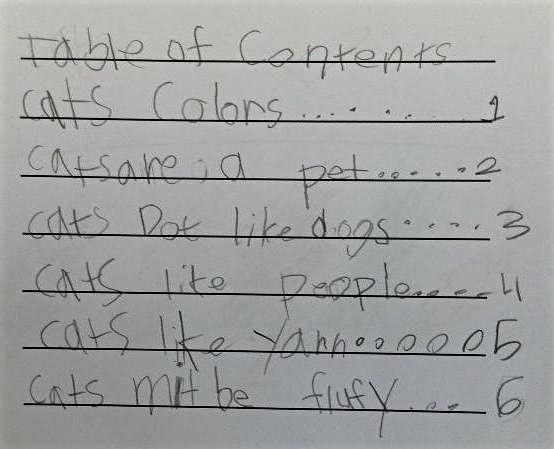 Table of Contents
cats Colors....... 1
catsare a pet......2
cats Dot like dogs.....3
cats like people.....4
cats like yann ooooo5
cats mit be flufy....6